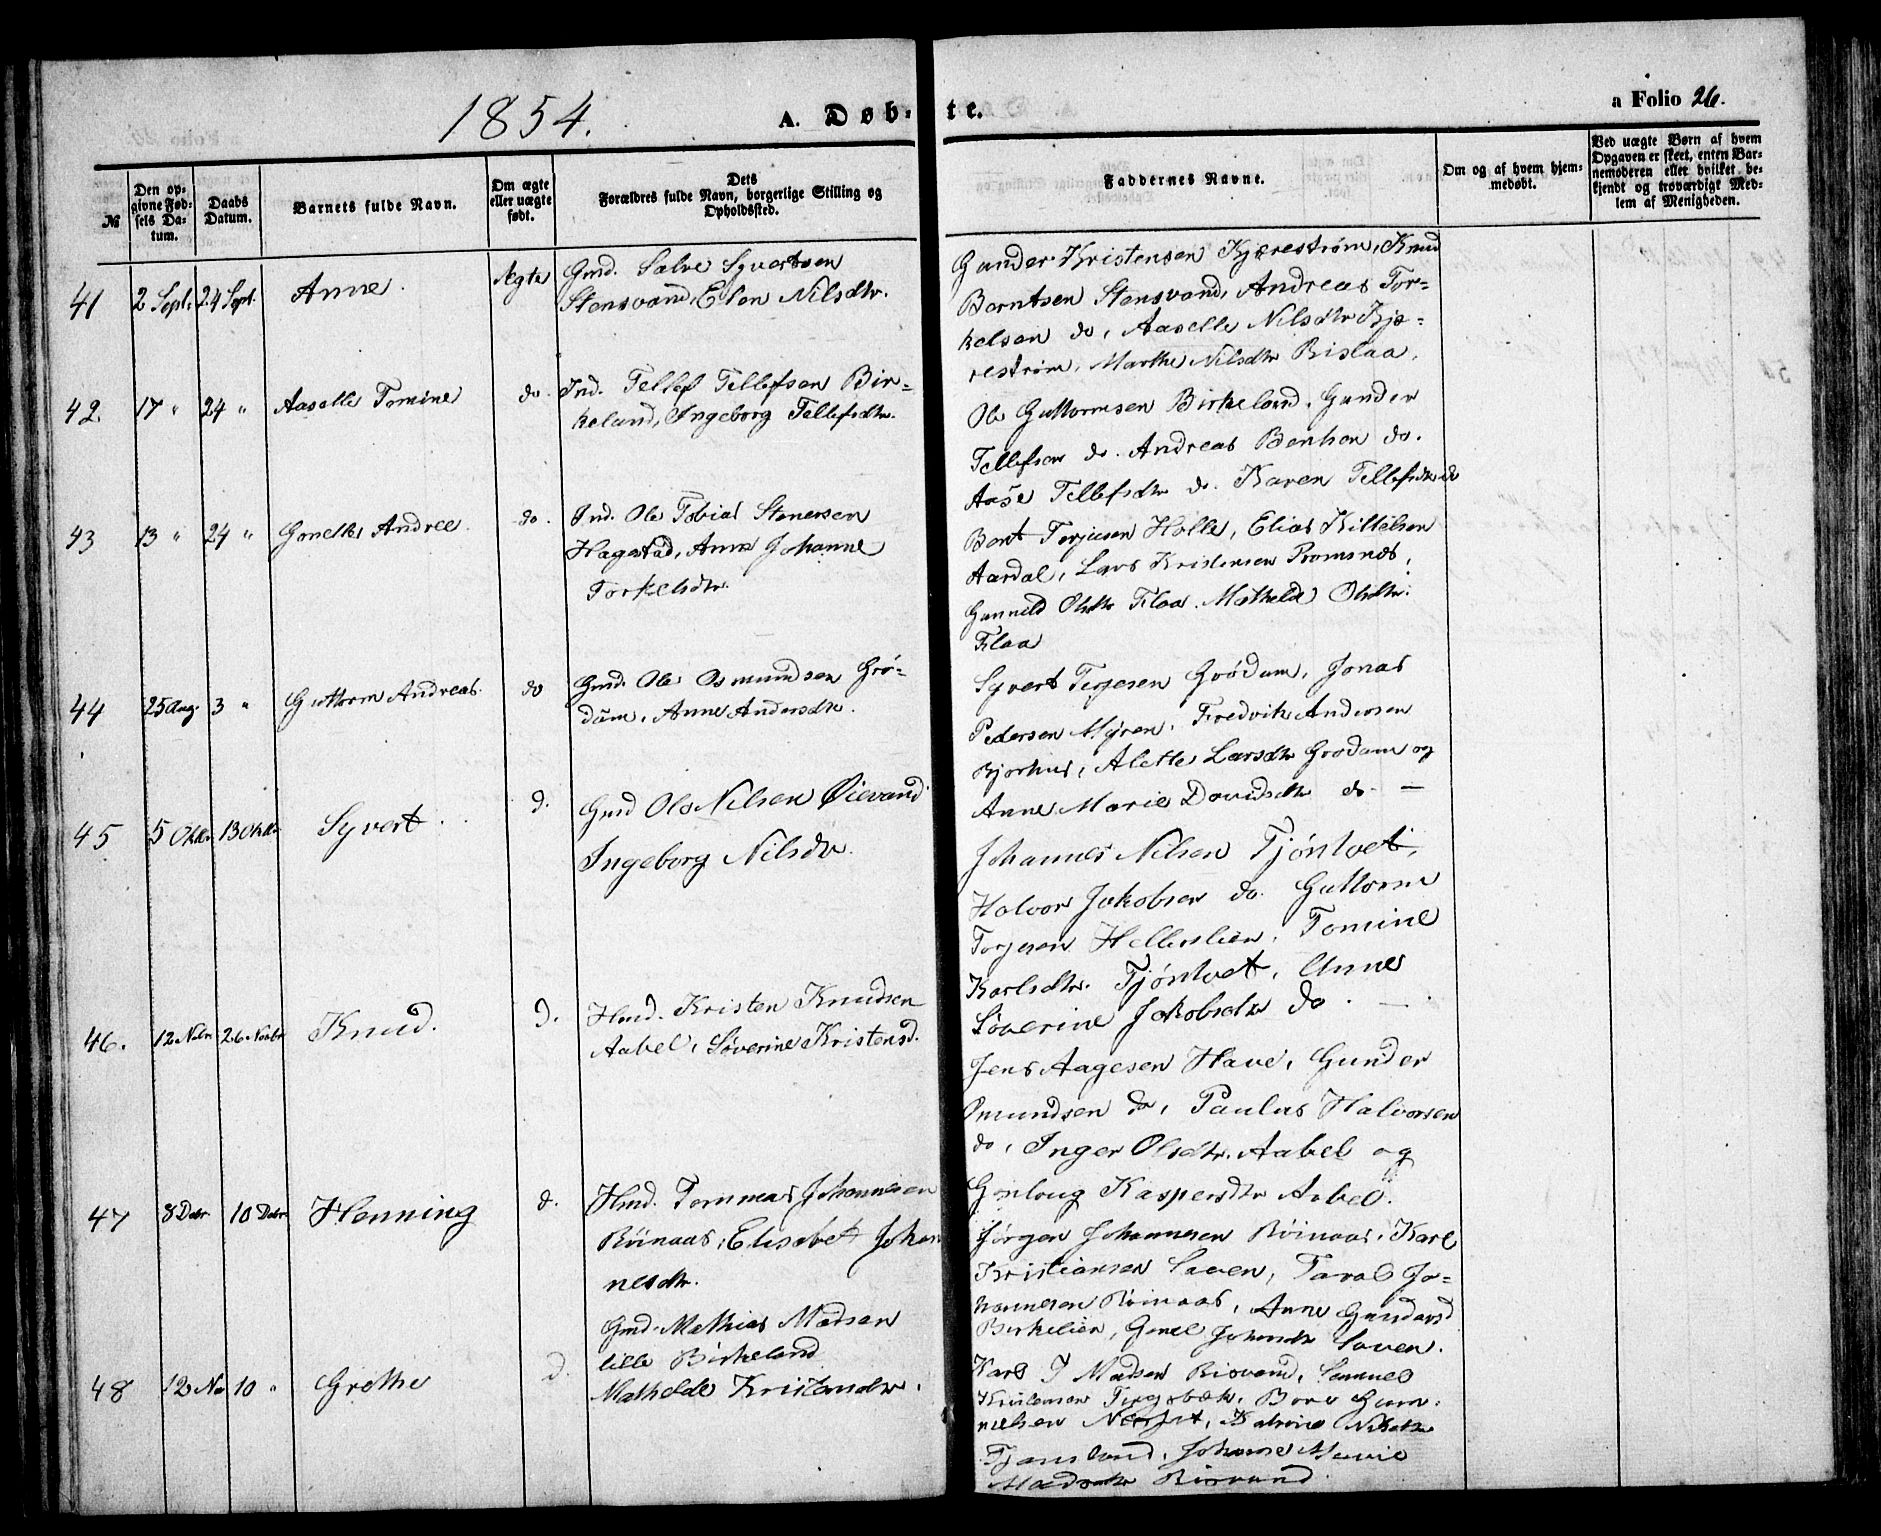 1854. A. Døb- te. a Folio 26.
№
Den op-
givne Fød-
sels Da-
tum.
Daabs
Datum.
Barnets fulde Navn.
Om ægte
eller uægte
født.
Dets
Forældres fulde Navn, borgerlige Stilling og
Opholdssted.
Faddernes Navne.
Om og af hvem hjem-
medøbt.
Ved uægte Børn af hvem
Opgaven er skeet, enten Bar-
nemoderen eller hvilket be-
kjendt og troværdigt Med-
lem af Menigheden.
41 2 Sept. 24 Sept. Anne. Ægte Gmd. Salve Syvertsen
Stensvand, Elen Nilsdtr.
Gunder Kristensen Kjærestrøm, Knud
Berntsen Stensvand, Andreas Tor-
kelsen do, Aaselle Nilsdtr Kjæ-
restrøm, Marthe Nilsdtr Rislaa,
42. 17 " 24 " Aaselle Tomine do. Ind. Tellef Tellefsen Bir-
keland, Ingeborg Tellefsdtr.
Ole Guttormsen Birkeland, Gunder
Tellefsen do. Andreas Bentsen do.
Aase Tellefsdtr do. Karen Tellefsdtr do
43 13 " 24 " Gonelle Andree. do. Ind. Ole Tobias Stenersen
Hagestad, Anne Johanne
Torkelsdtr.
Bent Terjusen Holle, Elias Kittelsen
Aardal, Lars Kristensen Romsnes,
Gunnild Olsdtr Flaa. Mathilde Olsdtr.
Flaa
44 25 Aug. 3 " Guttorm Andreas. do Gmd. Ole Osmundsen Grø-
dum, Anne Andersdtr.
Syvert Terjesen Grødum, Jonas
Pedersen Myren, Fredrik Andersen
Bjorhus, Alette Larsdtr Grødum og
Anne Marie Davidsdtr do. —
45 5 Oktbr 13 Oktbr Syvert. d. Gmd Ole Nilsen Øievand
Ingeborg Nilsdtr.
Johannes Nilsen Tjøntvet,
Halvor Jakobsen do. Guttorm
Torjesen Hellerslien, Tomine
Karlsdtr. Tjøntvet, Anne
Søverine Jakobsdtr do. —
46. 12 Nvbr 26 Novbr Knud. d. Hmd. Kristen Knudsen
Aabel, Søverine Kristensd.
Jens Aagesen Have, Gunder
Omundsen do, Paulus Halvorsen
do, Inger Olsdtr. Aabel og
Gonloug Kaspersdtr Aabel.
47 8 Debr 10 Debr Henning d. Hmd. Tommas Johannesen
Røinaas, Elisabet Johan
nesdtr.
Jørgen Johannesen Røinaas, Karl
Kristiansen Saven, Taral Jo-
hannesen Røinaas, Anne Gundersd
Birkelien, Gunel Johansdtr Saven.
48 12 No 10 " Grethe d. Gmd. Mathias Madsen
lille Birkeland
Mathilde Kristiansdtr.
Karl J Madsen Risvand, Samuel
Kristensen
nielsen Katrine Nilsdtr
Tjomsland, Johanne Marie
Madsdtr Risvand.